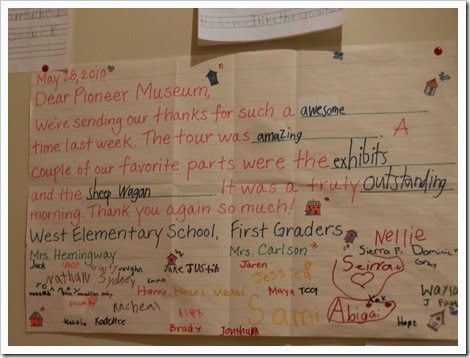 May 28, 2010
Dear Pioneer Museum,
We're sending our thanks for such a awesome
time last week. The tour was amazing. A
couple of our favorite parts were the exhibits
and the Sheep Wagan. It was a truly outstanding
morning. Thank you again so much!
West Elementary School, First Graders
Mrs. Hemingway Mrs. Carlson
Nellie
Sierra P. Dominic
Jack Vaughn Jake Justin Jaren Seirra
Nathan Sydney Jessica
Emma Harris Hazel Maya Wayla
Racheal Alex Sami Abigai Zak
Kadence Hope
Brady Jonthan